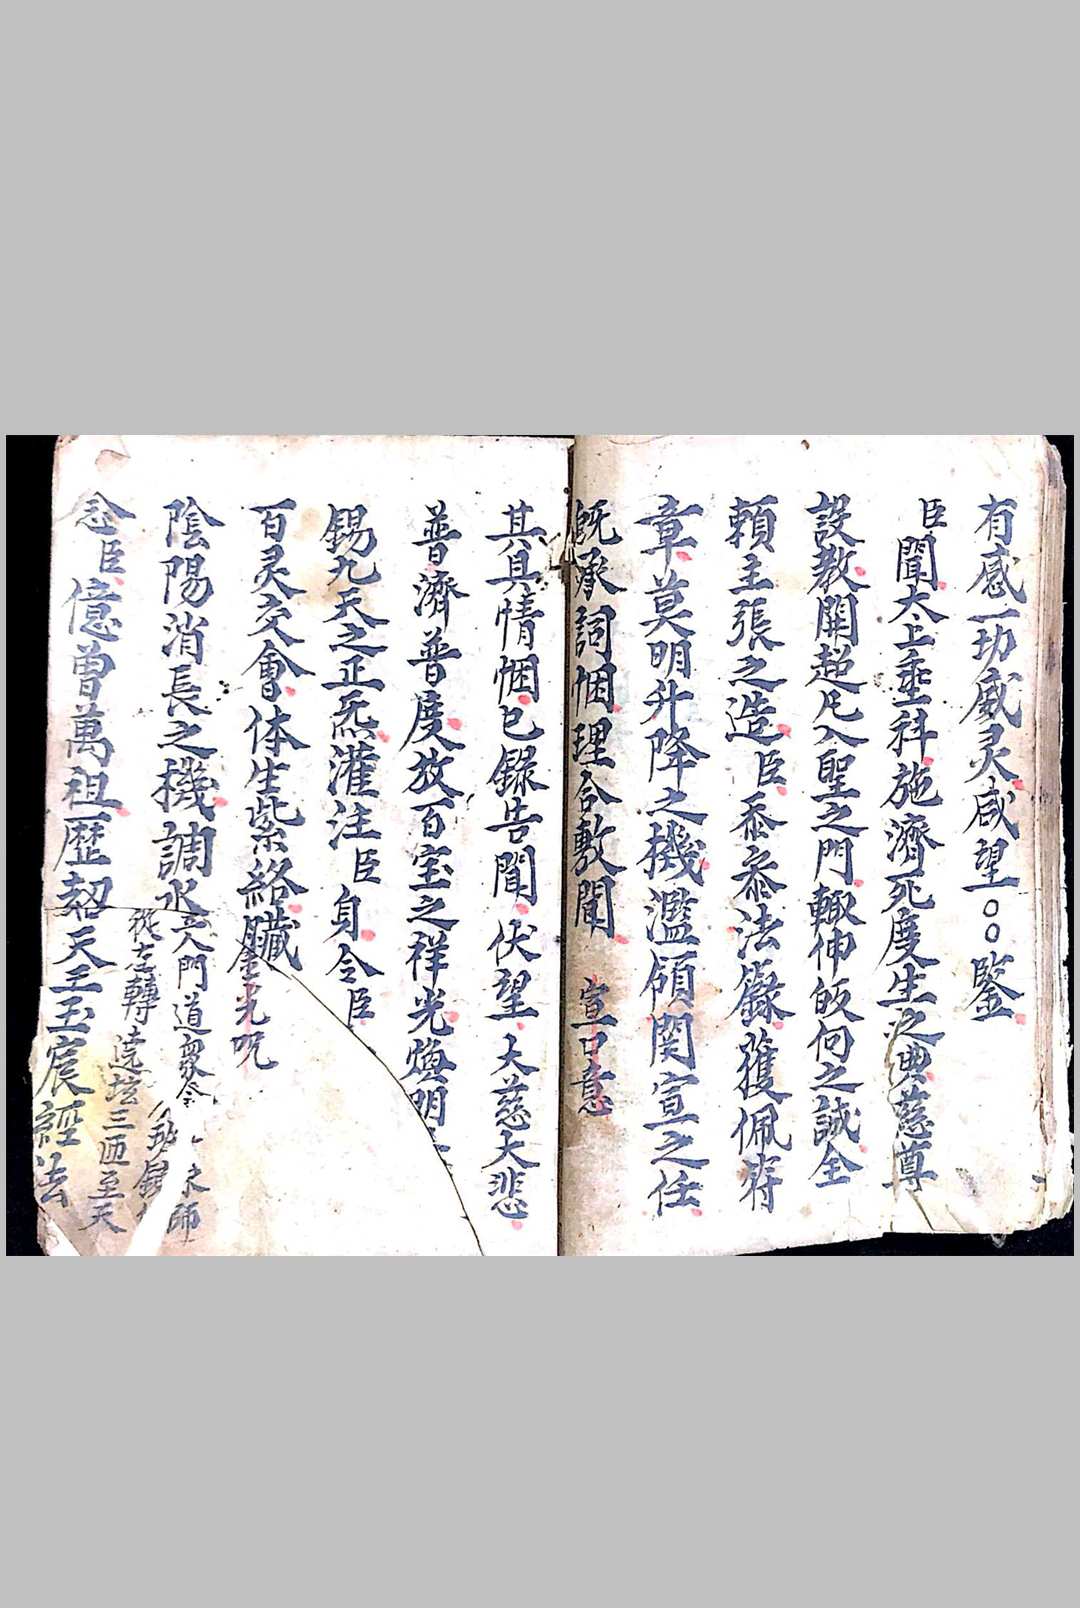 有感一切威灵咸望〇〇鉴
臣聞太上垂科施濟死度生之典慈尊
設教開超凡入聖之門輙伸皈向之誠全
賴主張之造臣忝参法籙獲佩符
章莫明升降之機濫領関宣之任
既承詞悃理合敷聞 宣口意
其具情悃已錄告聞伏望大慈大悲
普濟普度放百宝之祥光煥明
錫九天之正炁灌注臣身令臣
百灵交會体生紫絡臟金光呪
陰陽消長之機調水
入門道衆念 師
從左轉遶坛三匝至天
念臣億曽萬祖歷刼天王玉宸經法